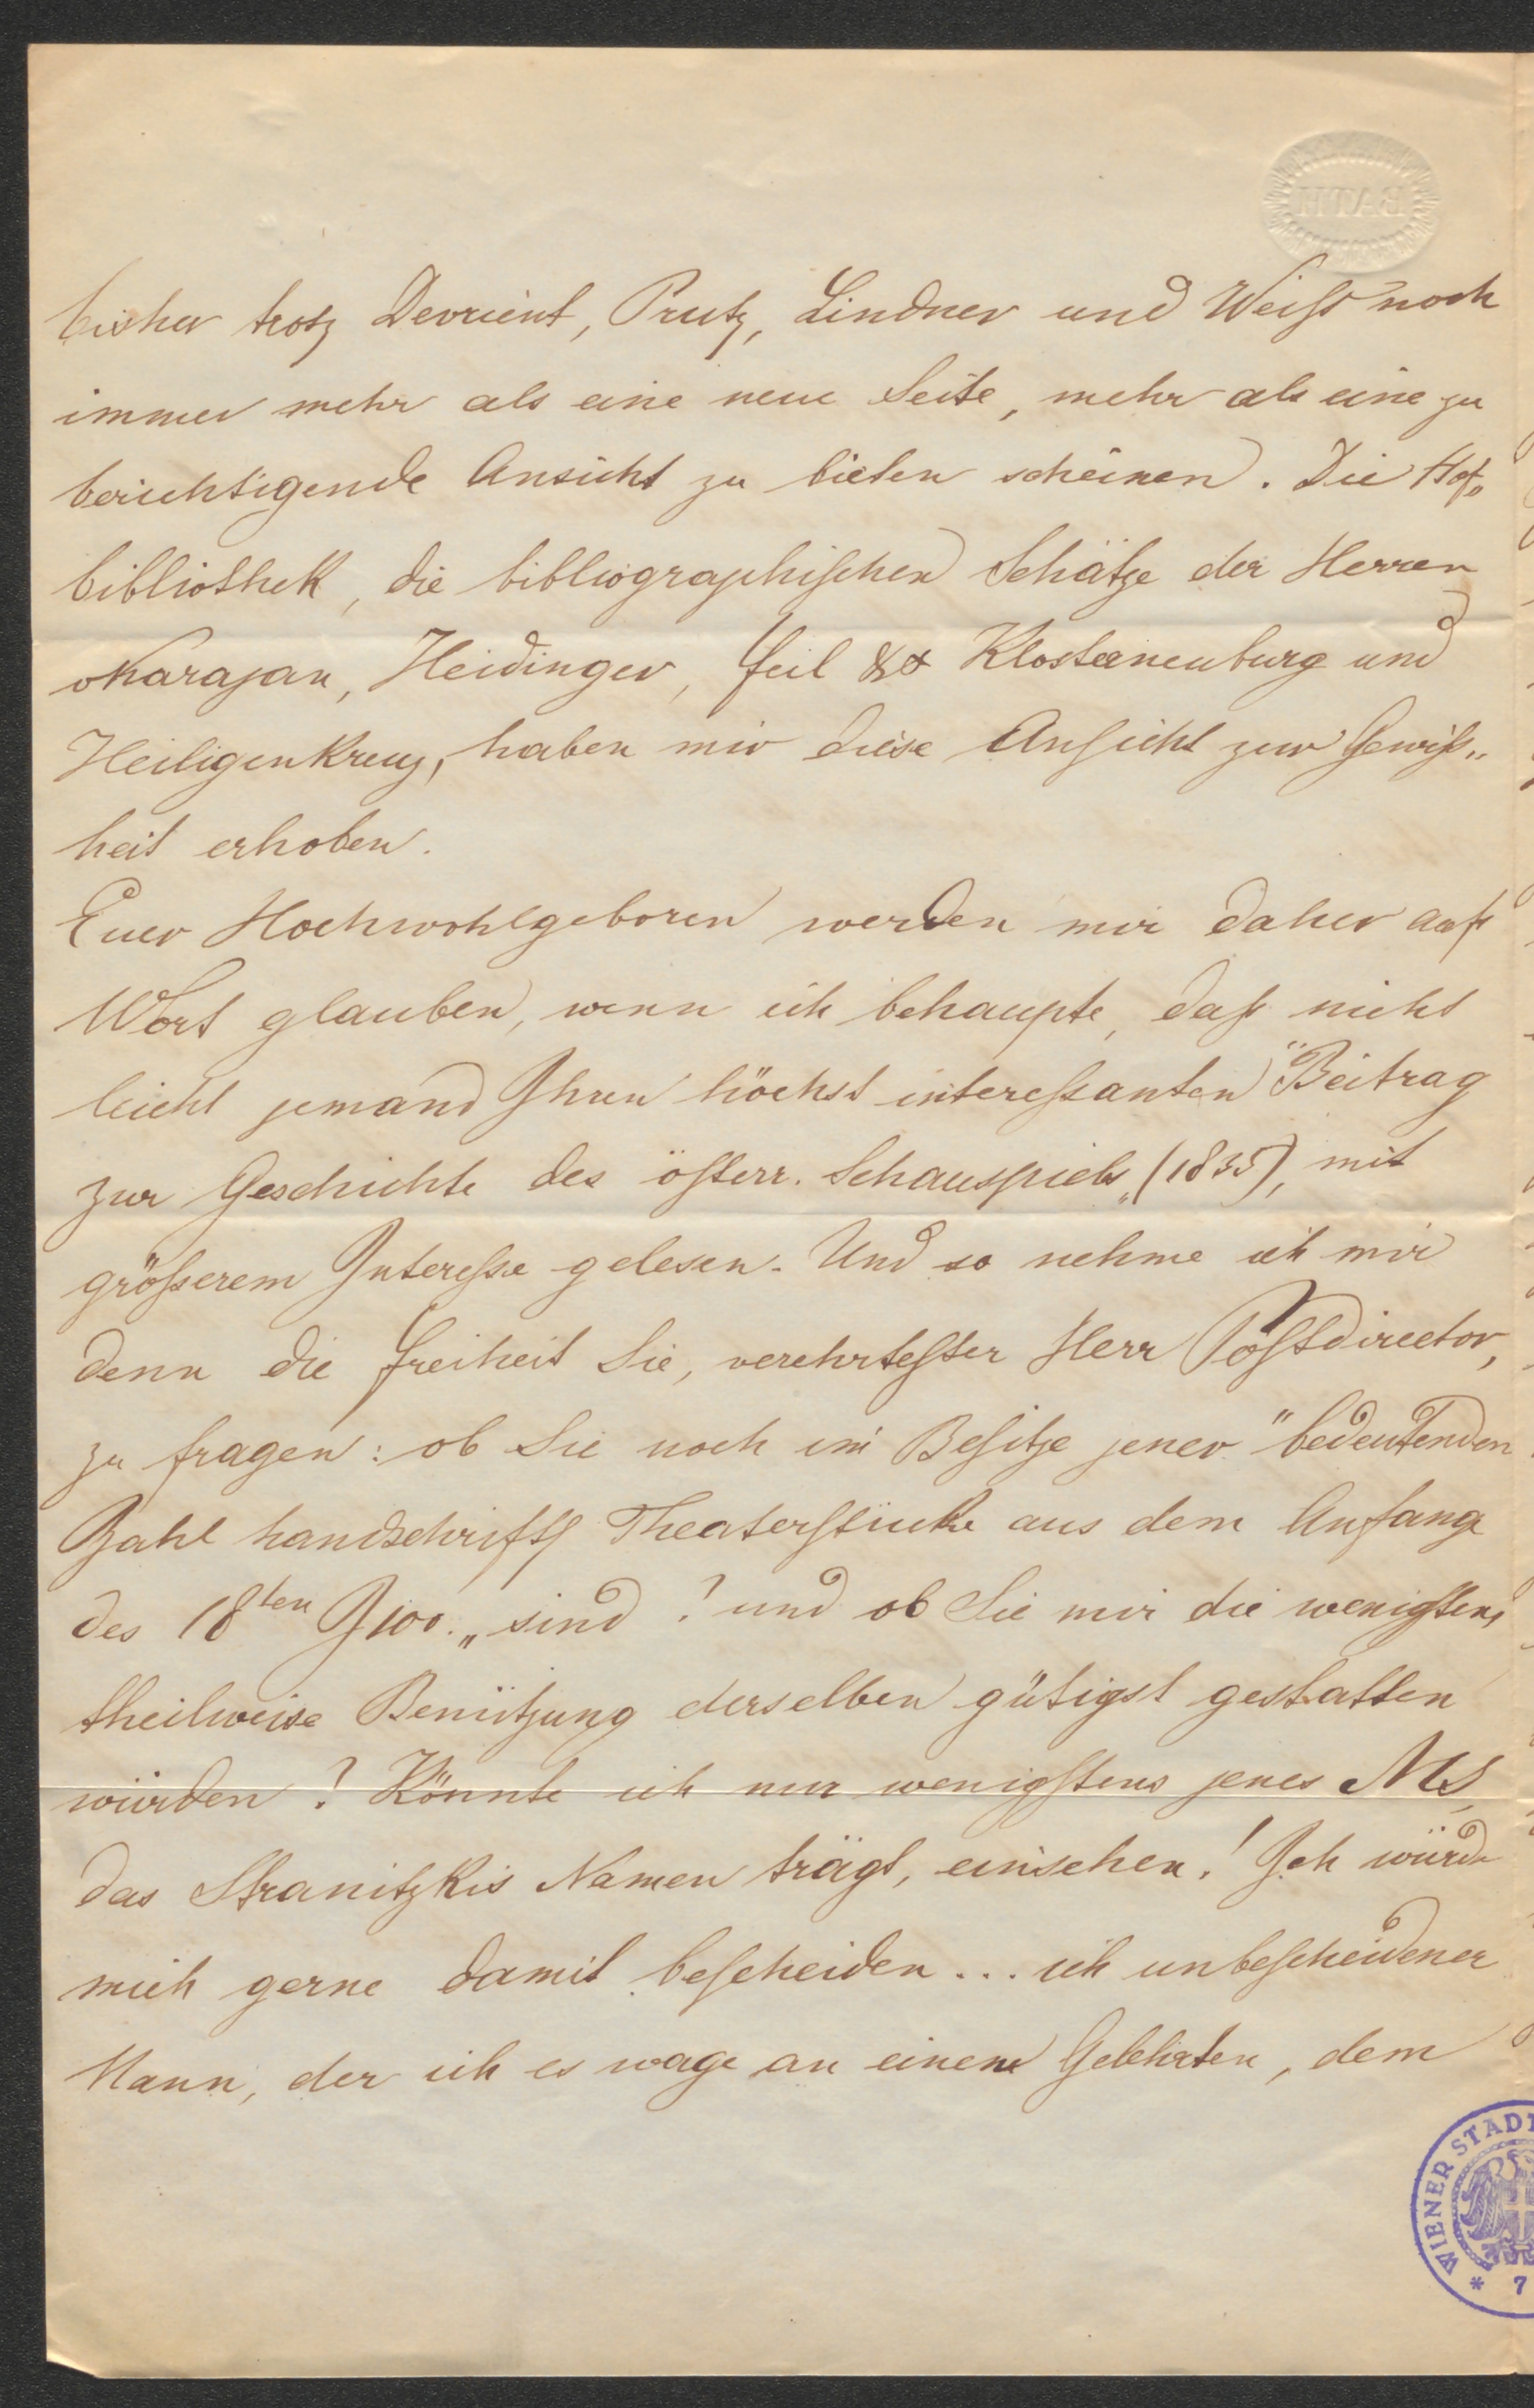 BATH
bisher trotz Devrient, Prutz, Lindner und Weiß noch
immer mehr als eine neue Seite, mehr als eine zu
berichtigende Ansicht zu bieten scheinen. Die Hof„
bibliothek, die bibliographischen Schätze der Herren
Karajan, Heidinger, Feil && Klosterneuburg und
Heiligenkreuz, haben mir diese Ansicht zur Gewiß„
heit erhoben.
Euer Hochwohlgeboren werden mir daher aufs
Wort glauben, wenn ich behaupte, daß nicht
leicht jemand Ihren höchst interessanten "Beitrag
zur Geschichte des österr. Schauspiels„ (1835), mit
größerem Interesse gelesen. Und so nehme ich mir
denn die Freiheit Sie, verehrtester Herr Postdirector,
zu fragen: ob Sie noch im Besitze jener "bedeutenden
Zahl handschriftl Theaterstücke aus dem Anfange
des 18ten J100.„ sind? und ob Sie mir die wenigstens
theilweise Benützung derselben gütigst gestatten
würden? Könnte ich nur wenigstens jenes MS,
das Stranitzkis Namen trägt, einsehen! Ich würde
mich gerne damit bescheiden... ich unbescheidener
Mann, der ich es wage an einem Gelehrten, dem
WIENER STADT
* 7